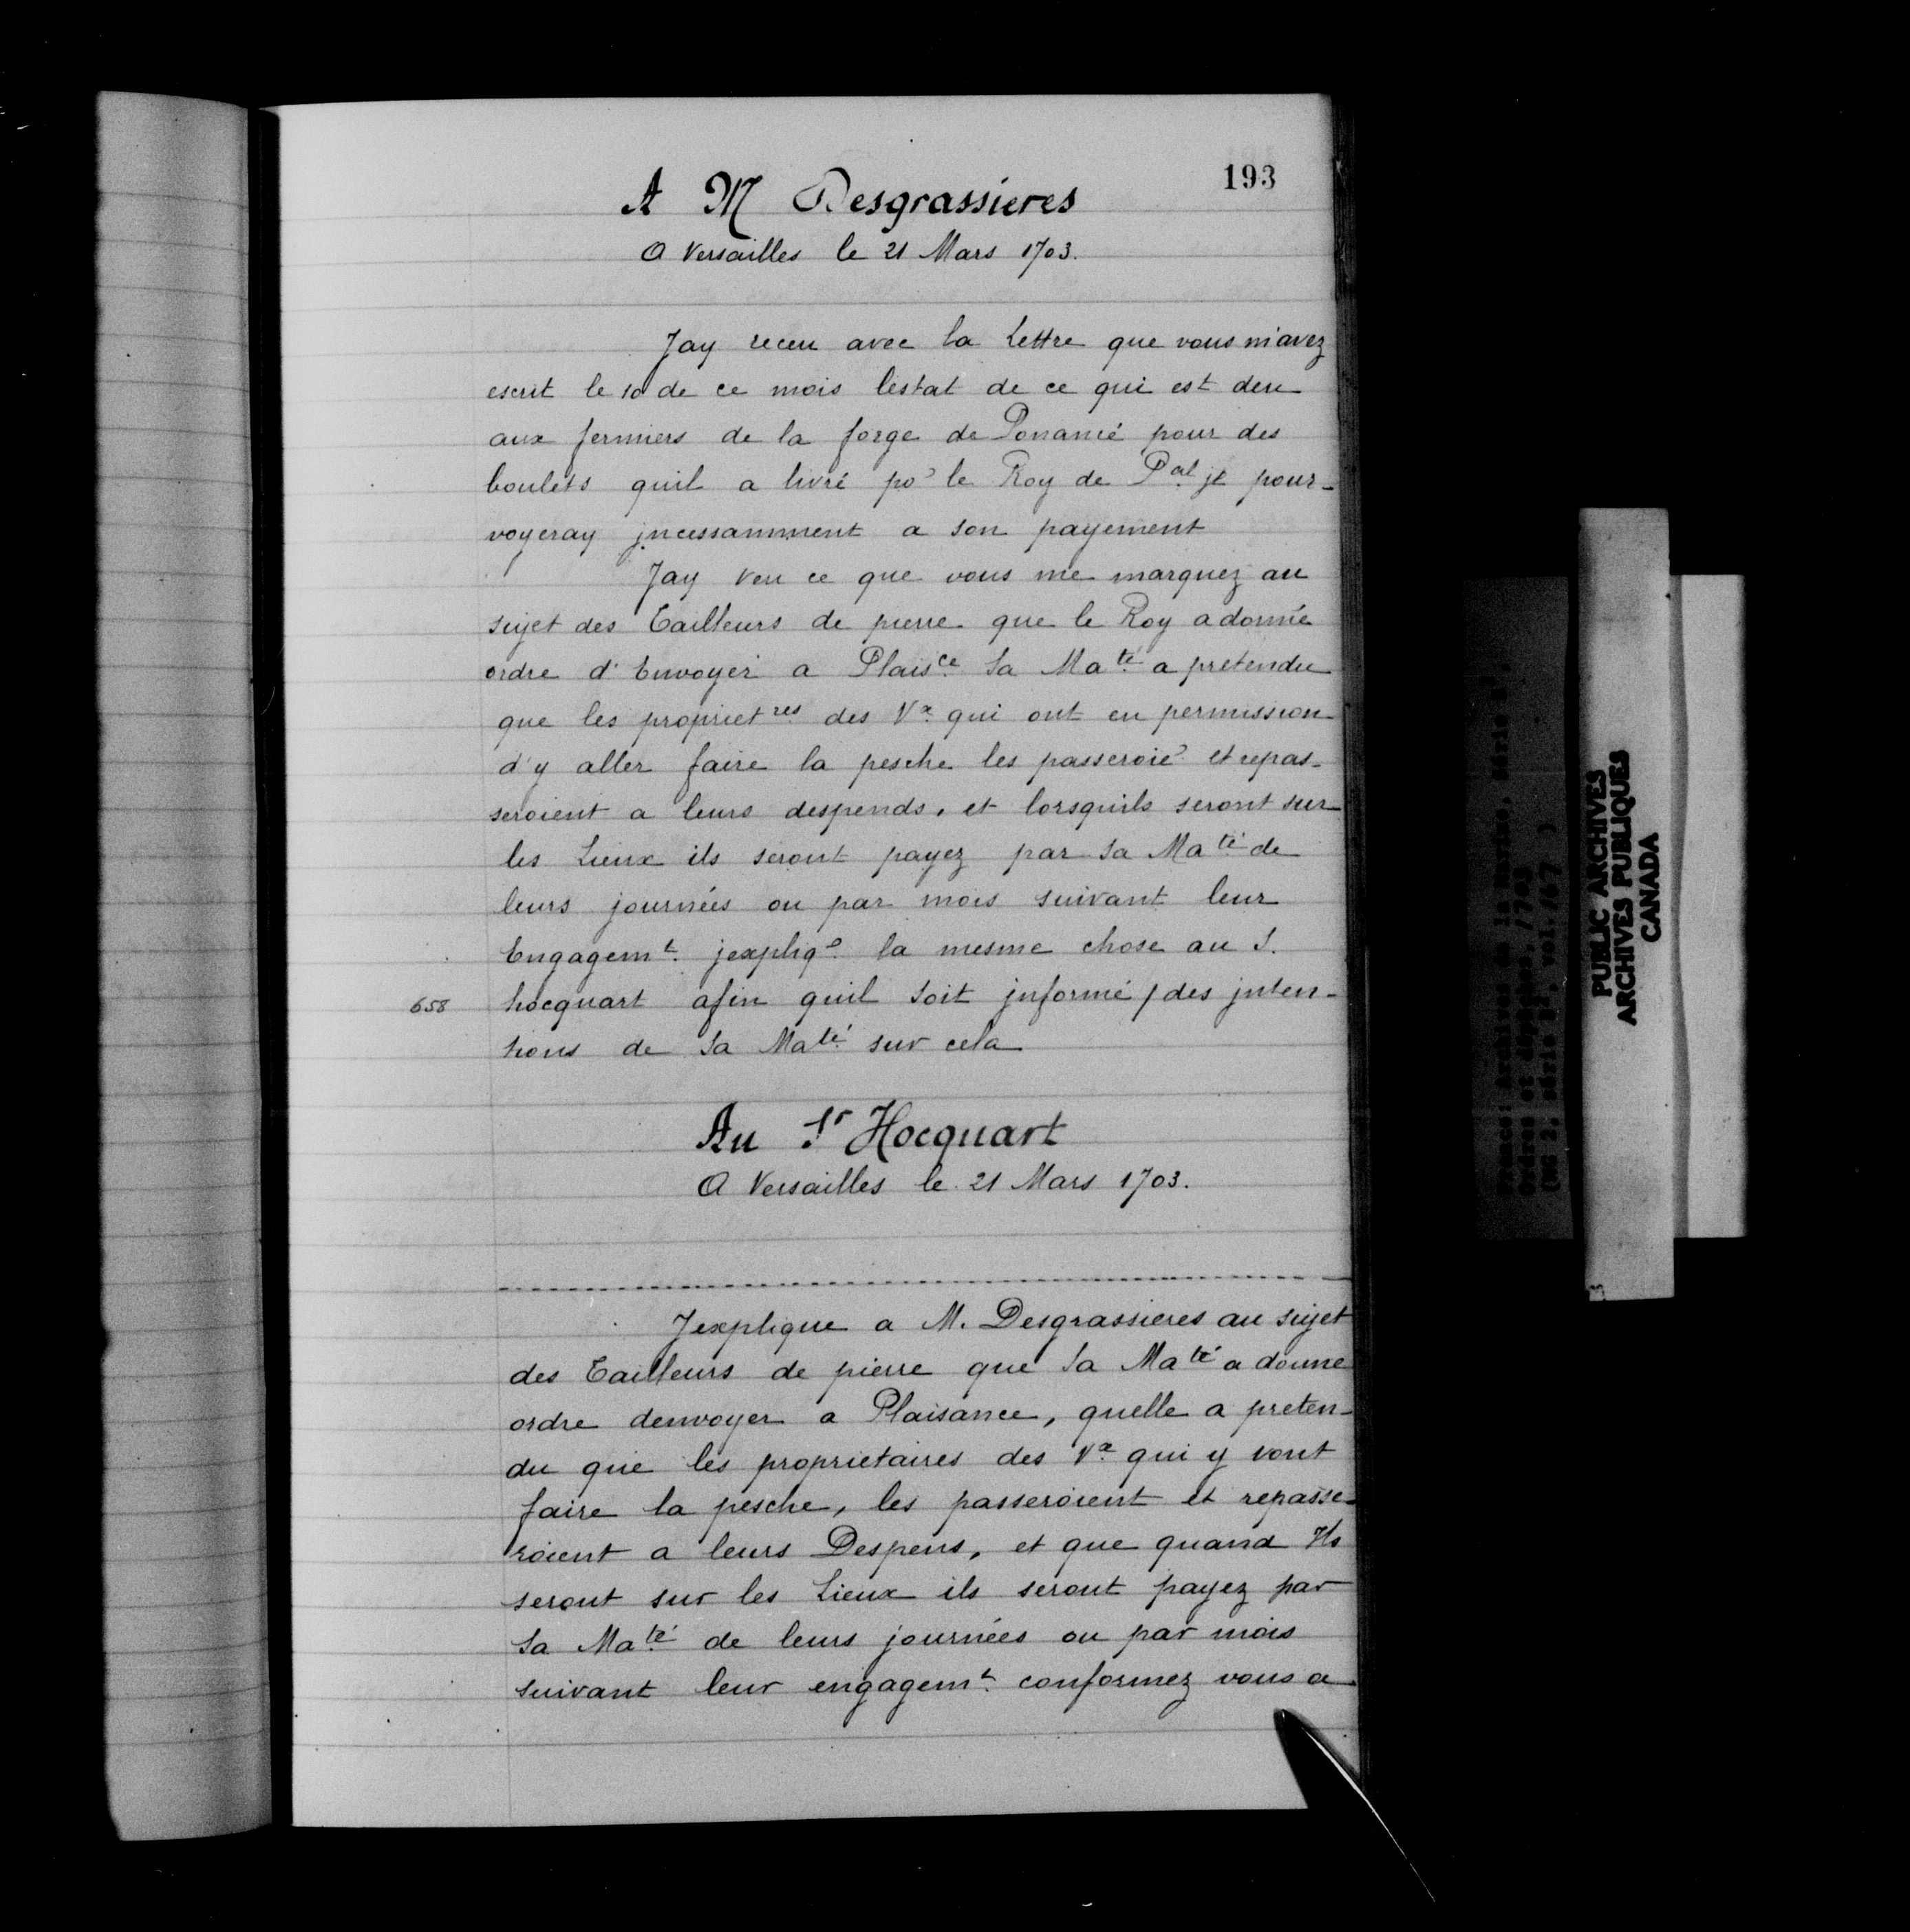 193
A M Desgrassieres
A Versailles le 21 Mars 1703.
Jay receu avec la Lettre que vous m'avez
escrit le 10 de ce mois lestat de ce qui est deu
aux fermiers de la forge de Ponamé pour des
boulets quil a livré po^r le Roy de P^al je pour-
voyeray jncessamment a son payement
Jay veu ce que vous me marquez au
sujet des Tailleurs de pierre que le Roy a donné
ordre d'Envoyer a Plais^ce Sa Ma^té a pretendu
que les propriet^res des V^x qui ont eu permission
d'y aller faire la pesche les passeroie^t et repas-
seroient a leurs despends, et lorsquils seront sur
les Lieux ils seront payez par Sa Ma^té de
leurs journées ou par mois suivant leur
Engagem^t jexpliq^e la mesme chose au S.
658 hocquart afin quil soit jnformé / des jnten-
tions de Sa Ma^té sur cela
Au S^r Hocquart
A Versailles le 21 Mars 1703.
Jexplique a M. Desgrassieres au sujet
des Tailleurs de pierre que Sa Ma^té a donne
ordre denvoyer a Plaisance, quelle a preten-
du que les proprietaires des V^x qui y vont
faire la pesche, les passeroient et repasse-
roient a leurs Despens, et que quand Ils
seront sur les Lieux ils seront payez par
Sa Ma^té de leurs journées ou par mois
suivant leur engagem^t conformez vous a
PUBLIC ARCHIVES
ARCHIVES PUBLIQUES
CANADA